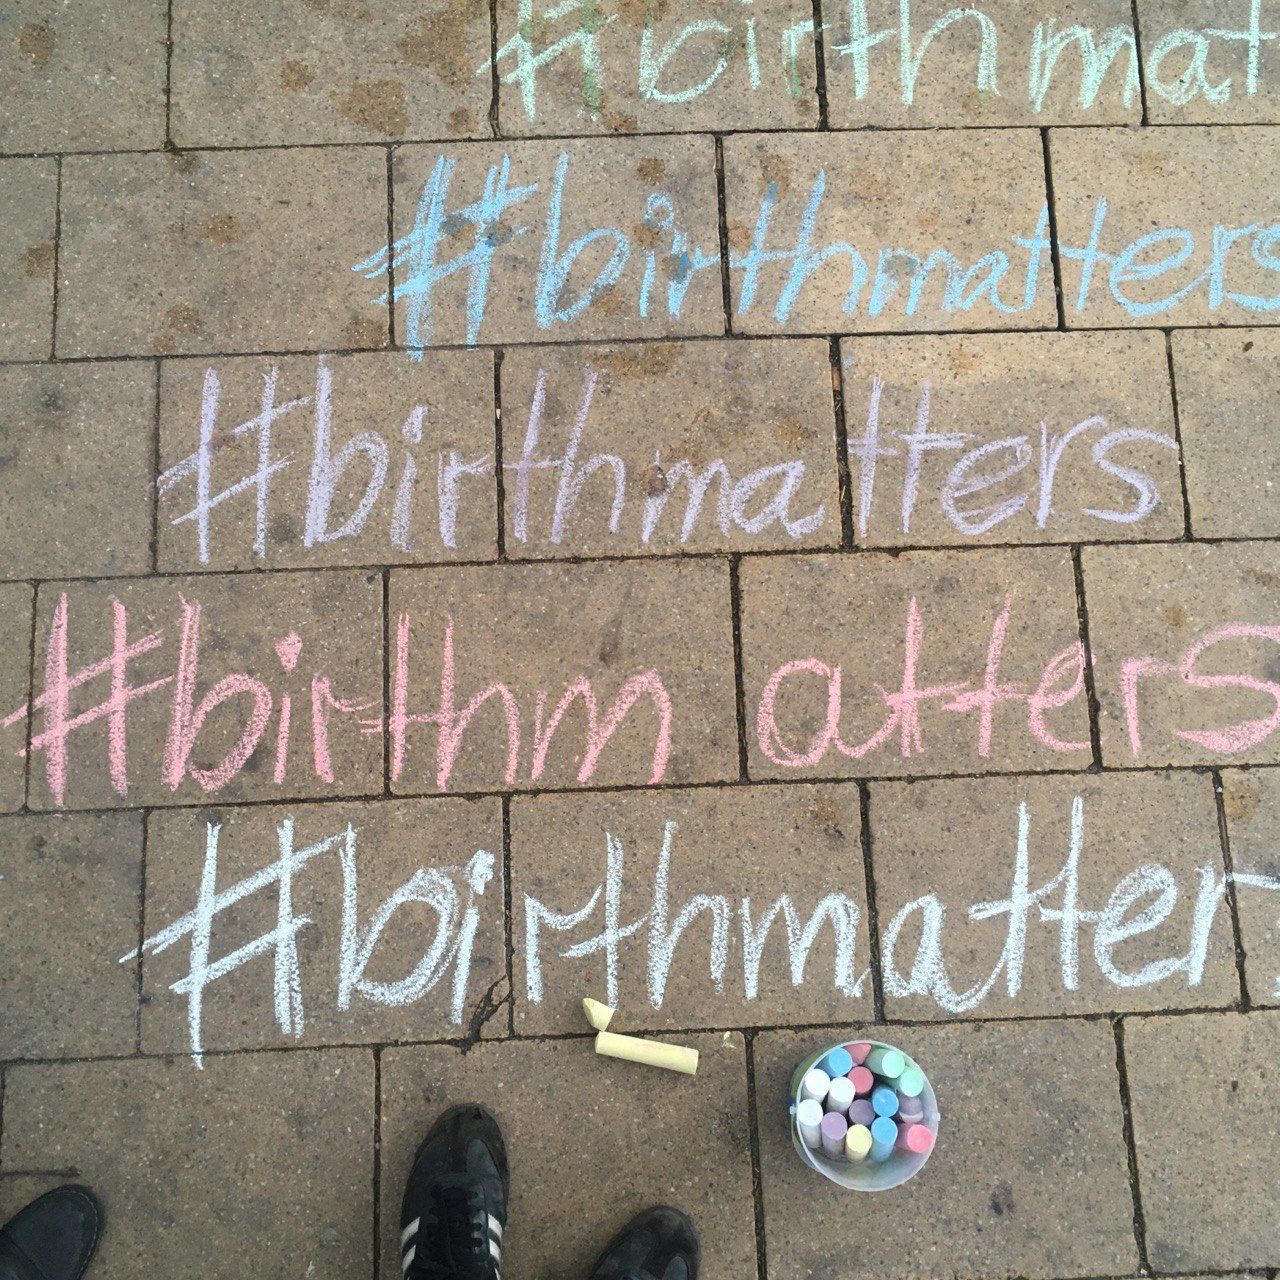 #birthmat
#birthmatters
#birthmatters
#birthm atters
#birthmatter